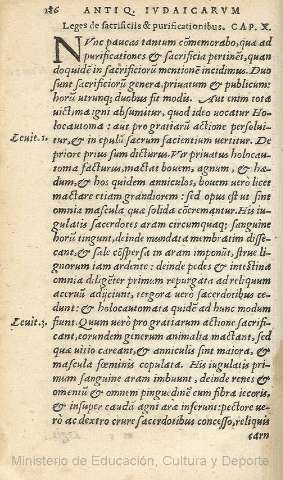 186 ANTIQ. IVDAICARVM
Leges de sacrificiis & purificationibus. CAP. X.
NVnc paucas tantum cōmemorabo, quæ ad
purificationes & sacrificia pertinēt, quan
doquidē in sacrificiorū mentionē incidimus. Duo
sunt sacrificiorū genera, priuatum & publicum:
horū utrunq; duobus fit modis. Aut enim tota
uictima igni absumitur, quod ideo uocatur Ho-
locautoma: aut pro gratiarū actione persolui-
Leuit. 1. tur, & in epulū sacrum facientium uertitur. De
priore prius sum dicturus. Vir priuatus holocau
toma facturus, mactat bouem, agnum, & hœ-
dum, & hos quidem anniculos, bouem uerò licet
mactare etiam grandiorem: sed opus est ut sint
omnia mascula quæ solida cōcremantur. His iu-
gulatis sacerdotes aram circumquaq; sanguine
horū tingunt, deinde mundata membratim disse-
cant, & sale cōspersa in aram imponūt, strue li-
gnorum iam ardente: deinde pedes & intestina
omnia diligēter primum repurgata ad reliquum
aceruū adijciunt, tergora uerò sacerdotibus ce-
dunt: & holocautomata quidē ad hunc modum
Leuit. 3. fiunt. Quum uerò pro gratiarum actione sacrifi-
cant, eorundem generum animalia mactant, sed
quæ uitio careant, & anniculis sint maiora, &
mascula fœminis copulata. His iugulatis pri-
mum sanguine aram imbuunt, deinde renes &
omentū & omnem pinguedinē cum fibra iecoris,
& insuper caudā agni aræ inferunt: pectore ue-
rò ac dextro crure sacerdotibus concesso, reliquis
carn
Ministerio de Educación, Cultura y Deporte